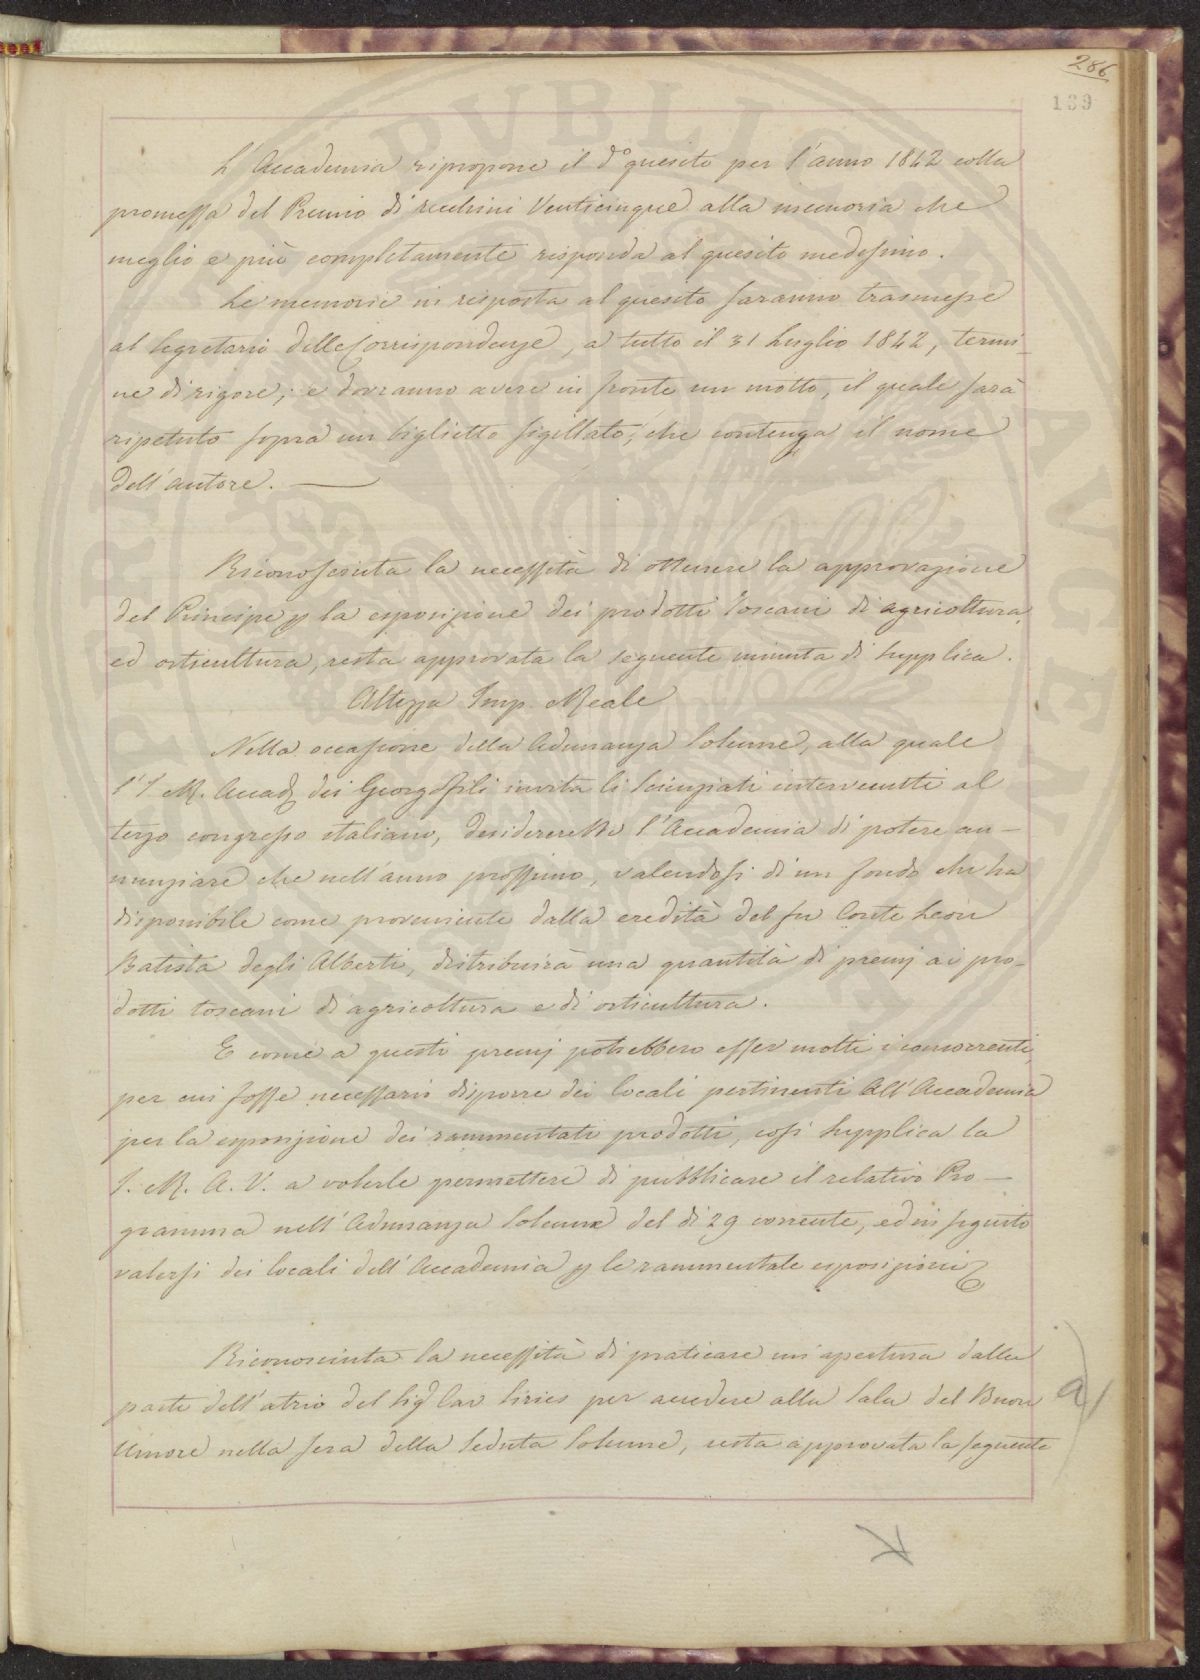 286
139
L'Accademia ripropone il d° quesito per l'anno 1842 colla
promessa del Premio di zecchini Venticinque alla memoria che
meglio e più completamente risponda al quesito medesimo.
Le memorie in risposta al quesito saranno trasmesse
al Segretario delle Corrispondenze, a tutto il 31 Luglio 1842, termi-
ne di rigore; e dovranno avere in fronte un motto, il quale sarà
ripetuto sopra un biglietto sigillato, che contenga il nome
dell'autore. —
Riconosciuta la necessità di ottenere la approvazione
del Principe p la esposizione dei prodotti Toscani di agricoltura,
ed orticultura, resta approvata la seguente minuta di supplica.
Altezza Imp. e Reale
Nella occasione della Adunanza Solenne, alla quale
l'I. e R. Accad. dei Georgofili invita li Scienziati intervenuti al
terzo congresso italiano, desidererebbe l'Accademia di potere an-
nunziare che nell'anno prossimo, valendosi di un fondo che ha
disponibile come proveniente dalla eredità del fu Conte Leon
Batista degli Alberti, distribuirà una quantità di premj ai pro-
dotti toscani di agricoltura e di orticultura.
E come a questi premj potrebbero esser molti i concorrenti,
per cui fosse necessario disporre dei locali pertinenti all'Accademia
per la esposizione dei rammentati prodotti, così supplica la
I. e R. A. V. a volerle permettere di pubblicare il relativo Pro-
gramma nell'Adunanza Solenne del dì 29 corrente, ed in seguito
valersi dei locali dell'Accademia p le rammentate esposizioni
Riconosciuta la necessità di praticare un'apertura dalla
parte dell'atrio del Sig Cav Siries per accedere alla Sala del Buon
Umore nella sera della Seduta Solenne, resta approvata la seguente